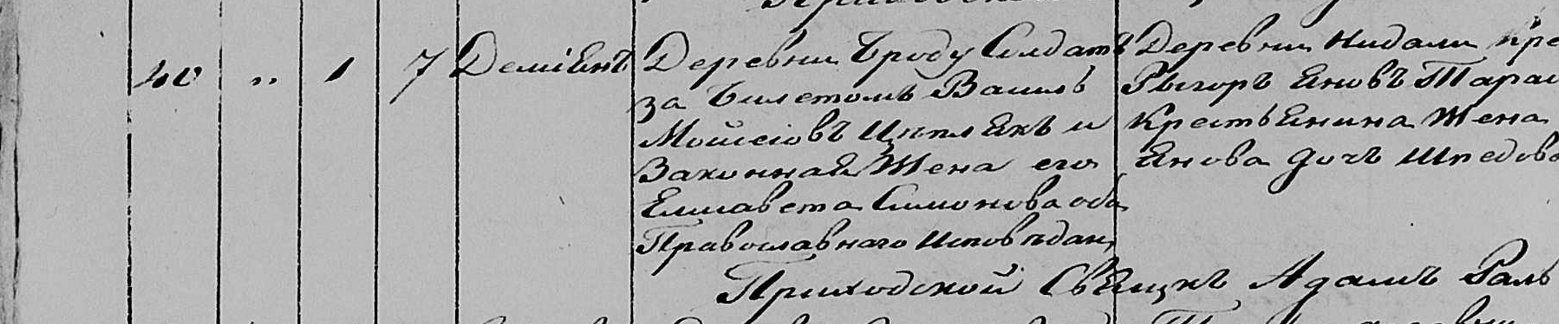 40 " 1 7 Деміянъ
Деревни Броду Солдатъ
за билетомъ Василь
Мойсеіовъ Цыплякъ и
Законная Жена его
Елисавета Симонова оба
Православнаго исповедан,
Деревни Нидали Кре
Рыгоръ Яновъ Тарас
Крестьянина Жена
Янова дочъ
Приходской Свящнкъ Адамъ